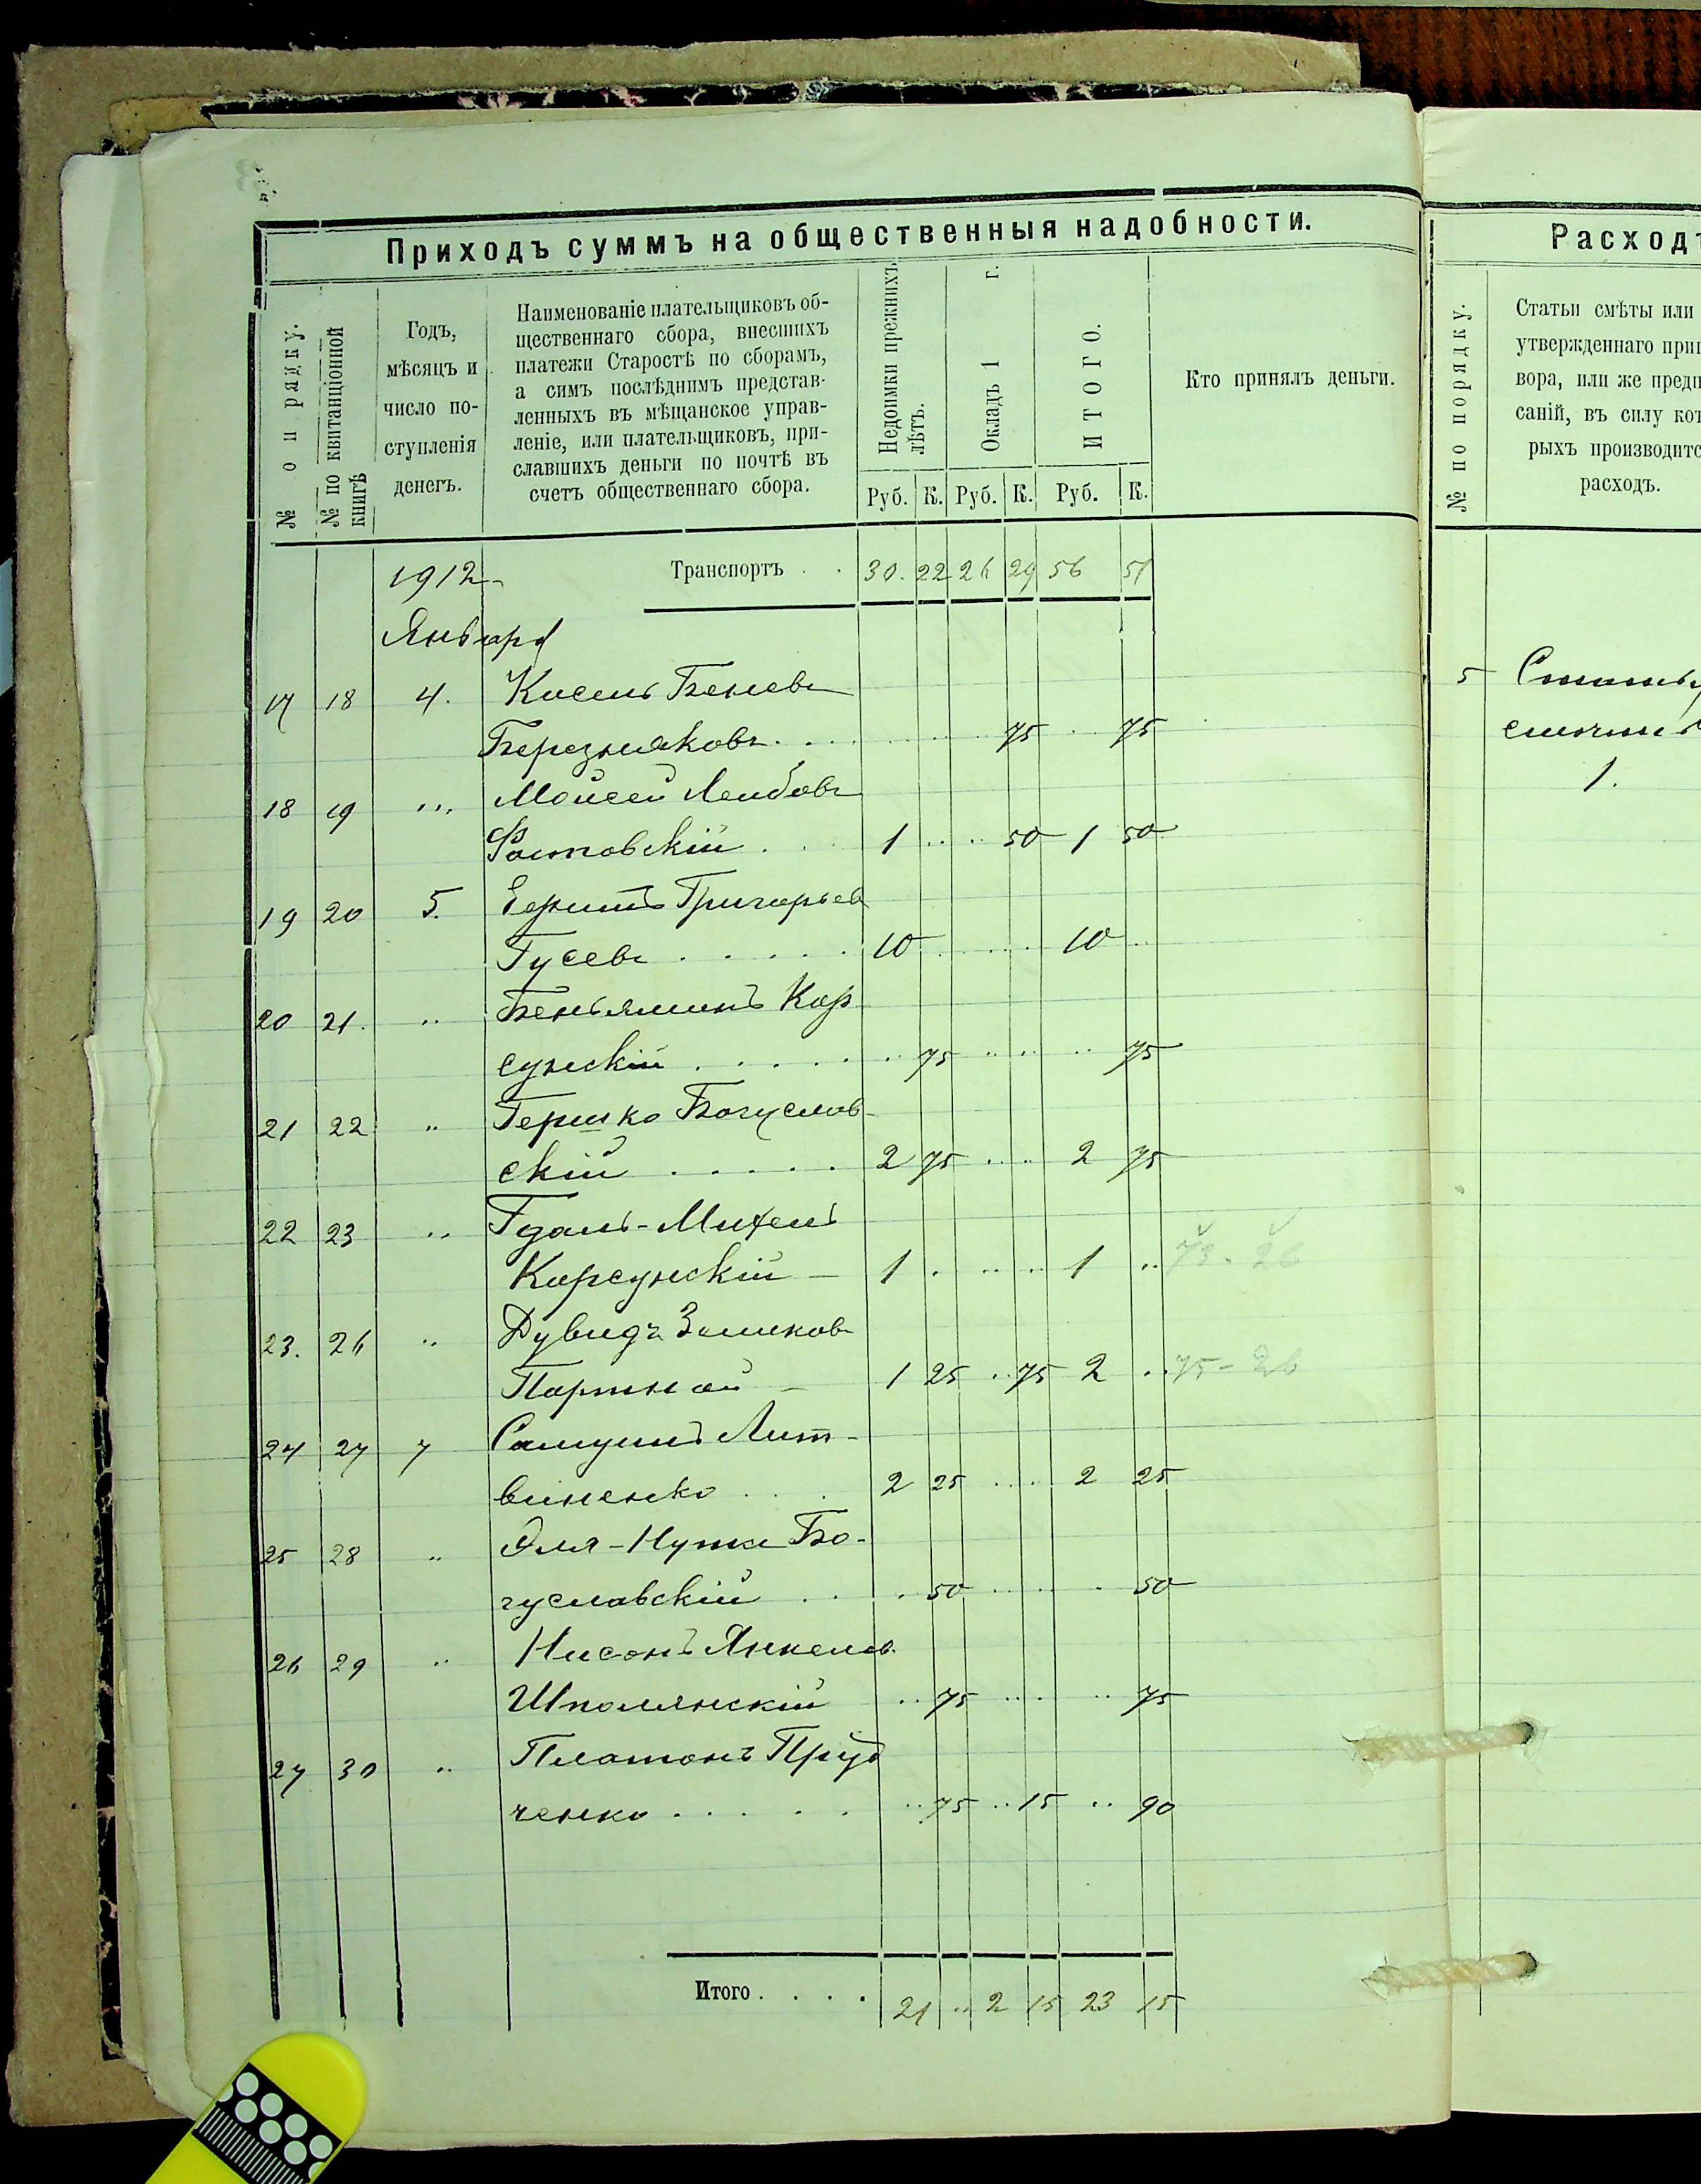 Приходъ суммъ на общественныя надобности.
№ по рядку.
№ по квитанціонной книгѣ
Годъ, мѣсяцъ и число поступленія денегъ.
Наименованіе плательщиковъ об-
щественнаго сбора, внесшихъ
платежи Старостѣ по сборамъ,
а симъ послѣднимъ представ-
ленныхъ въ мѣщанское управ-
леніе, или плательщиковъ, при-
славшихъ деньги по почтѣ въ
счетъ общественнаго сбора.
Недоимки прежнихъ лѣтъ.
Окладъ 1 г.
ИТОГО.
Кто принялъ деньги.
Руб. К. Руб. К. Руб. К.
1912 Транспортъ . . 30. 22 26 29 56 51
Января
17 18 4. Кисель Беневъ
Березняковъ. . . . 75 . . 75
18 19 " Мойсей Лейбовъ
Ростовскій . . 1 . . . . 50 1 50
19 20 5. Григорьев
Гусевъ . . . . . 10 . . . . 10 . .
20 21. " Беньяминъ Кор
сунскій . . . . . . . 75 . . . . . . 75
21 22 " Гершко Богуслав-
скій . . . . . 2 75 . . . . 2 75
22 23 " Гдаль-Михель
Корсунскій - 1 . . . . . 1 . .
23. 26 " Дувидъ Зельиков
Портной - 1 25 . . 75 2 . . 75-26
24 27 7 Самуилъ Лит-
виненко . . . 2 25 . . . . 2 25
25 28 " Эля-Нута Бо-
гуславскій . . . 50 . . . . . 50
26 29 " Нисонъ Янкелев.
Шполянскій . . 75 . . . . . . 75
27 30 " Платонъ Пруд
ченко . . . . . . . 75 . . 15 . . 90
Итого . . . . 21 . . 2 15 23 15
Расходъ
№ по порядку.
Статьи смѣты или
утвержденнаго при
вора, или же пред
саній, въ силу ко
рыхъ производитс
расходъ.
5
1.